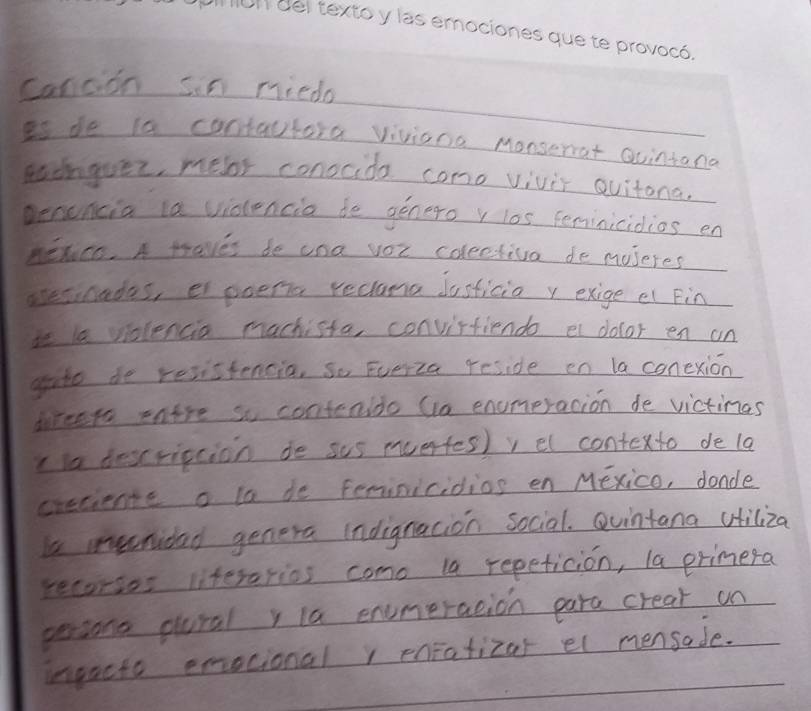 opinión del texto y las emociones que te provocó.
canción sin miedo
es de la cantautora Viviana Monserrat Quintana
Rodriguez, mejor conocida como Vivir Quitana.
Denuncia la violencia de género y los feminicidios en
México. A través de una voz colectiva de mujeres
asesinadas, el poema reclama Justicia y exige el Fin
de la violencia machista, convirtiendo el dolor en un
grito de resistencia, su Fuerza reside en la conexión
directa entre su contenido (la enumeración de victimas
y la descripción de sus muertes) y el contexto de la
creciente o la de Feminicidios en México, donde
la impunidad genera indignación social. Quintana utiliza
recursos literarios como la repetición, la primera
persona plural y la enumeración para crear un
impacto emocional y enfatizar el mensaje.